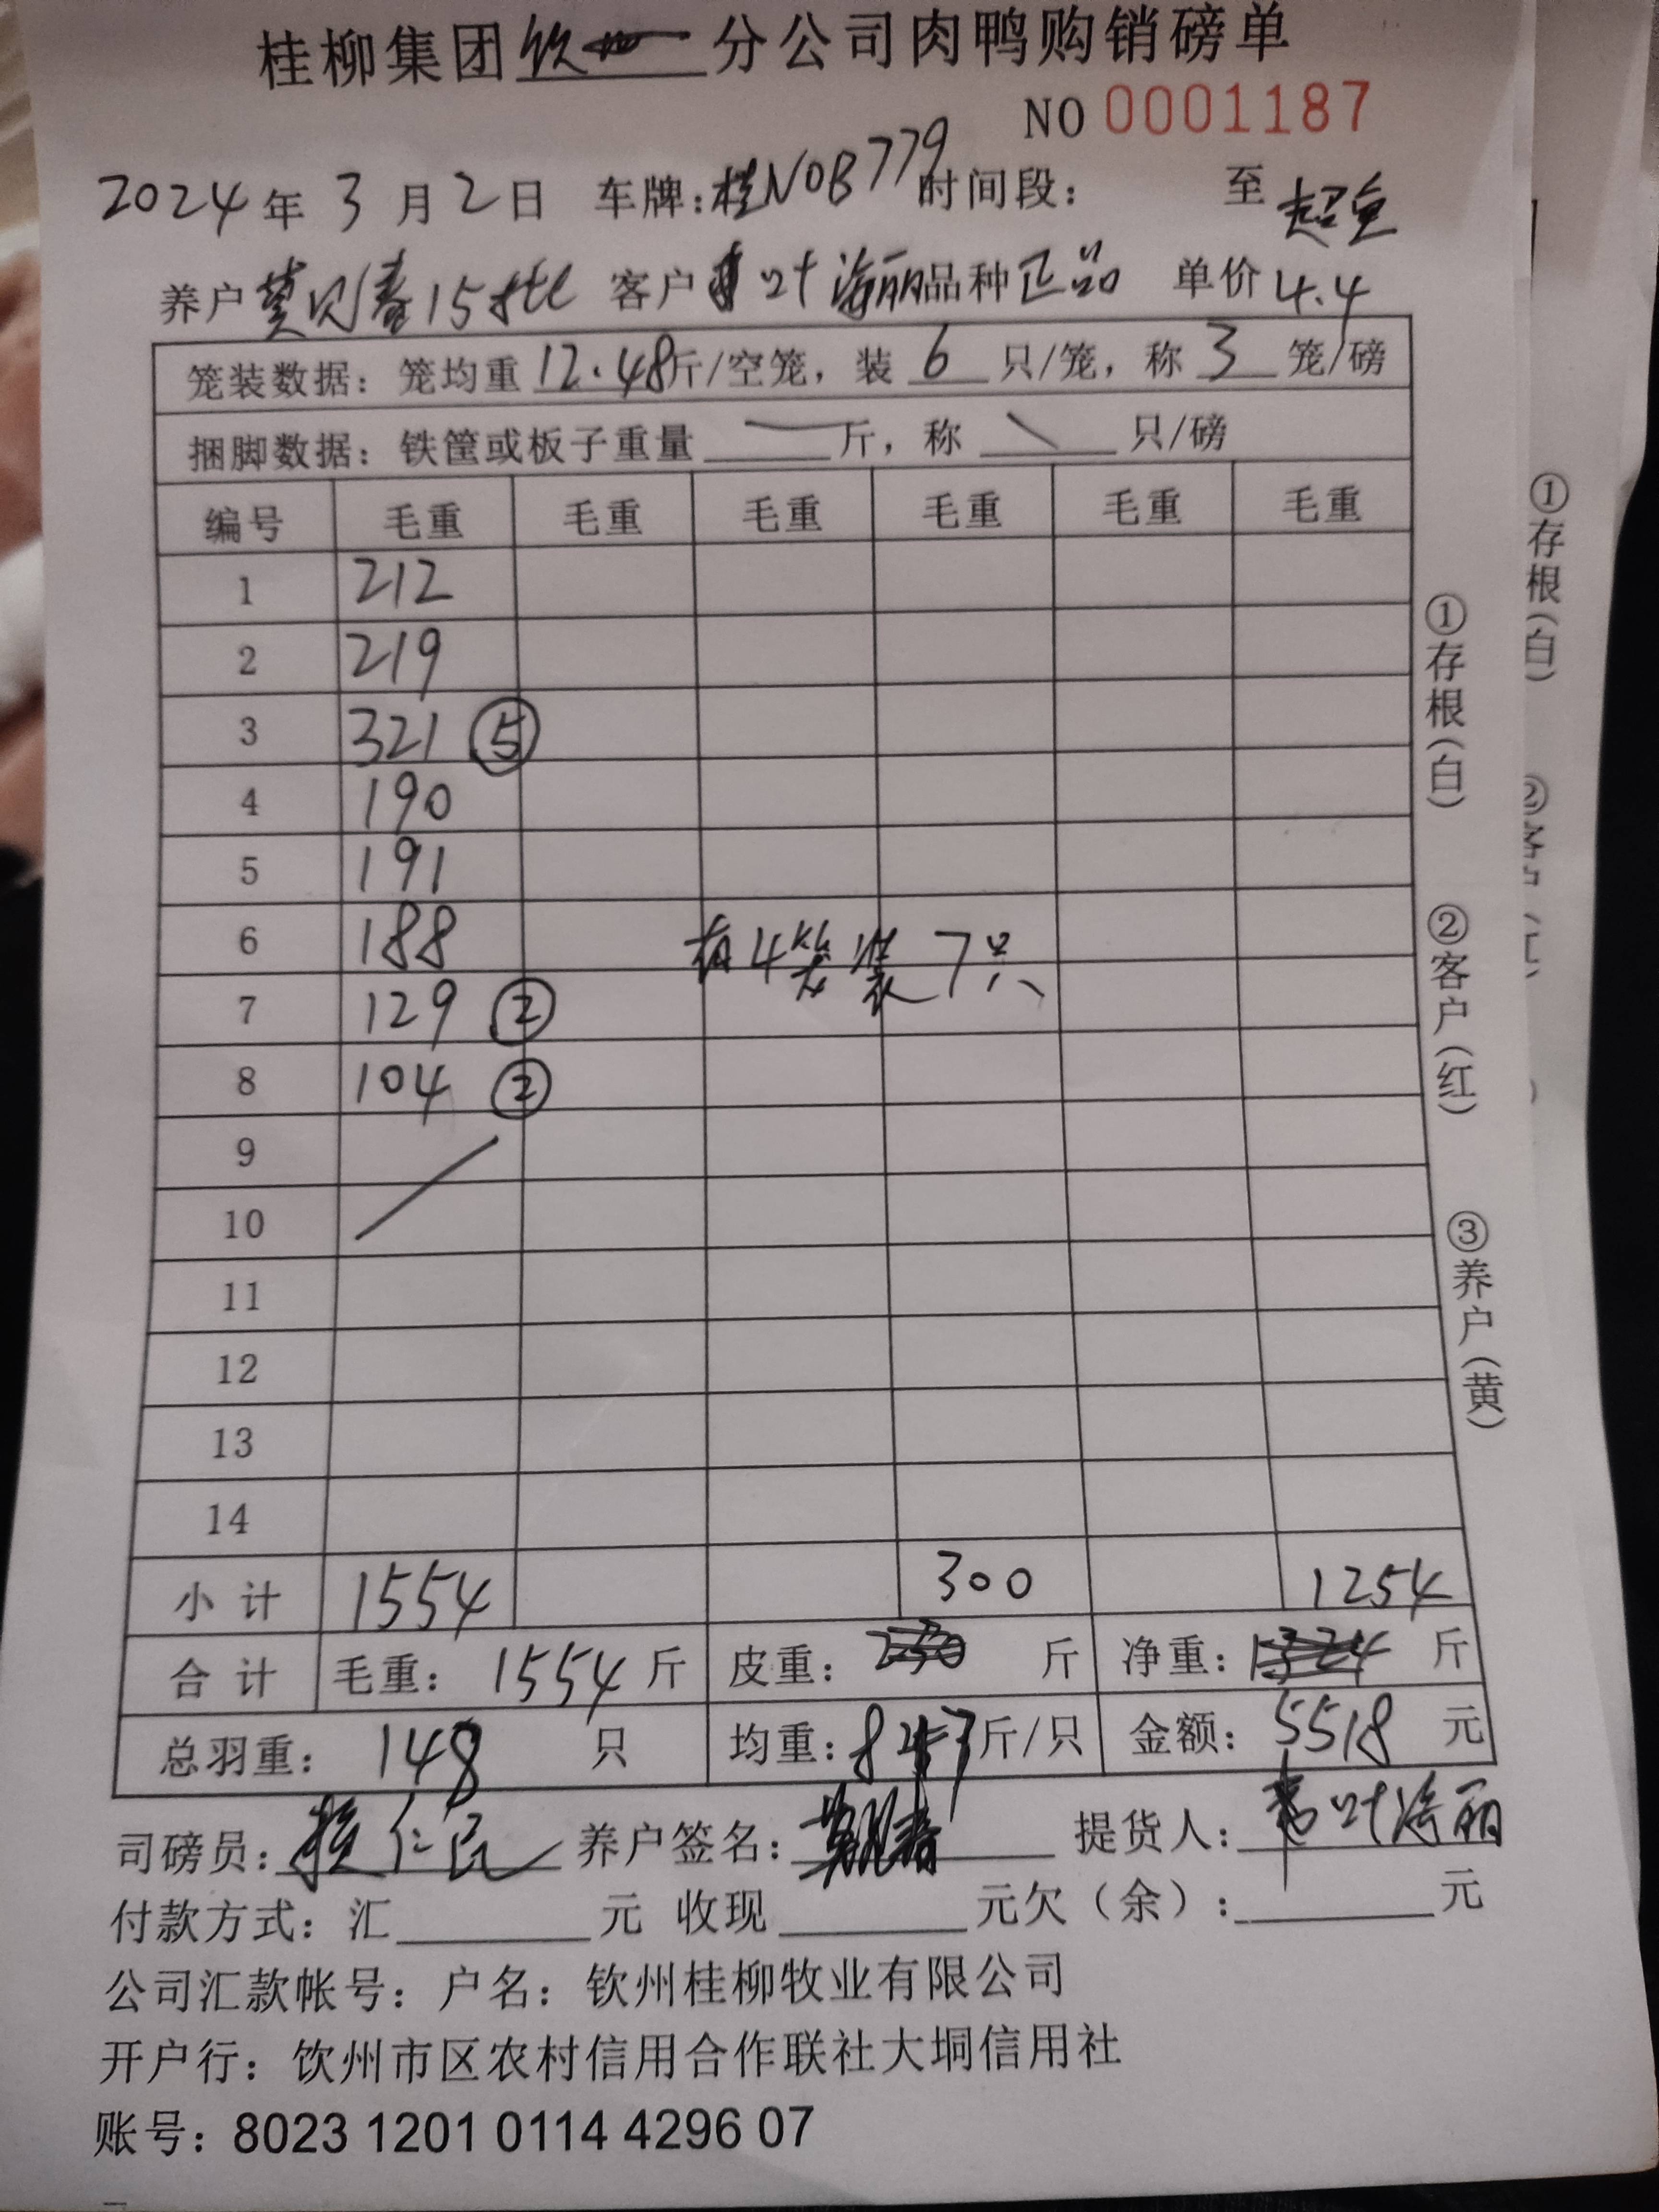 桂柳集团钦州分公司肉鸭购销磅单
NO 0001187
2024年3月2日 车牌:桂N0B779 时间段: 至 超重
养户 莫见春15批 客户 叶海丽 品种 正品 单价 4.4
笼装数据: 笼均重 12.48 斤/空笼, 装 6 只/笼, 称 3 笼/磅
捆脚数据: 铁筐或板子重量 斤, 称 只/磅
编号 毛重 毛重 毛重 毛重 毛重 毛重
1 212
2 219
3 321 ⑤
4 190
5 191
6 188 有4笼装7只
7 129 ②
8 104 ②
9
10
11
12
13
14
小计 1554 300 1254
合计 毛重: 1554 斤 皮重: 230 斤 净重: 1324 斤
总羽重: 148 只 均重: 8.47 斤/只 金额: 5518 元
司磅员: 仁民 养户签名: 莫见春 提货人: 叶海丽
付款方式: 汇 元 收现 元欠(余): 元
公司汇款帐号: 户名: 钦州桂柳牧业有限公司
开户行: 饮州市区农村信用合作联社大垌信用社
账号: 8023 1201 0114 4296 07
①存根(白)
②客户(红)
③养户(黄)
①存根(白)
②客户(红)